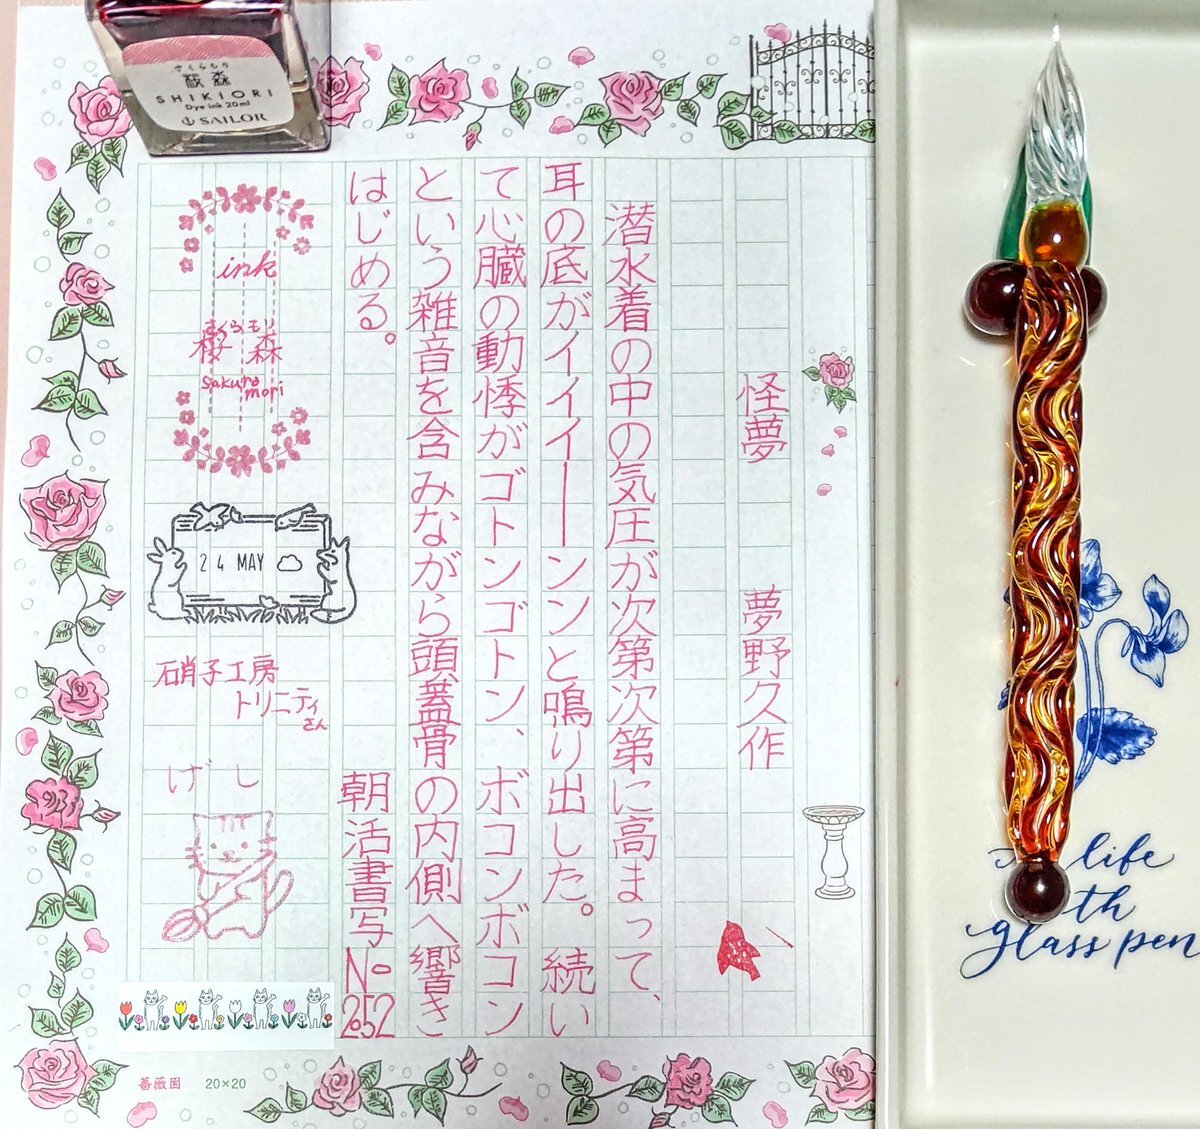 怪夢 夢野久作
潜水着の中の気圧が次第次第に高まって、
耳の底がイイイ――ンンと鳴り出した。続い
て心臓の動悸がゴトンゴトン、ボコンボコン
という雑音を含みながら頭蓋骨の内側へ響き
はじめる。
朝活書写 No.252
ink
さくらもり
桜森
sakura
mori
24 MAY
硝子工房
トリニティ
さん
げし
薔薇園 20×20
さくらもり
SHIKIORI
Dye ink 20ml
SAILOR
life
glass pen